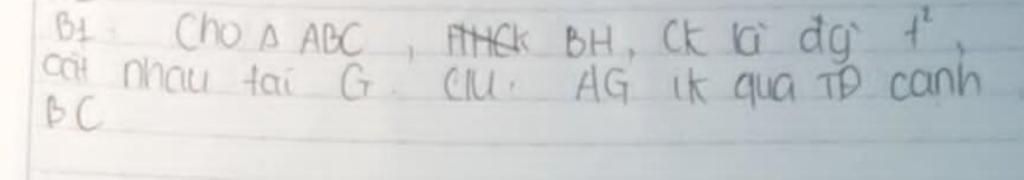 B1. Cho Δ ABC, BH, CK là đgì t²,
cắt nhau tại G. CM. AG ik qua TĐ cạnh
BC